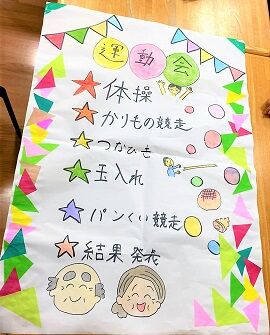 運動会
★体操
★かりもの競走
★つなひき
★玉入れ
★パンくい競走
★結果発表